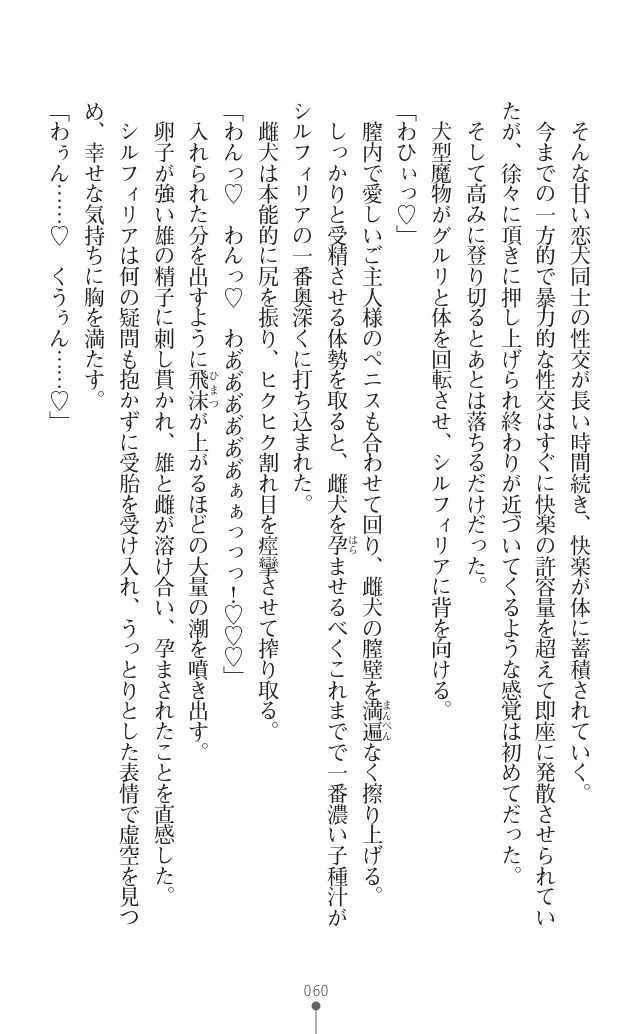 そんな甘い恋犬同士の性交が長い時間続き、快楽が体に蓄積されていく。
今までの一方的で暴力的な性交はすぐに快楽の許容量を超えて即座に発散させられてい
たが、徐々に頂きに押し上げられ終わりが近づいてくるような感覚は初めてだった。
そして高みに登り切るとあとは落ちるだけだった。
犬型魔物がグルリと体を回転させ、シルフィリアに背を向ける。
「わひぃっ♡」
まんべん
膣内で愛しいご主人様のペニスも合わせて回り、雌犬の膣壁を満遍なく擦り上げる。
はら
しっかりと受精させる体勢を取ると、雌犬を孕ませるべくこれまでで一番濃い子種汁が
シルフィリアの一番奥深くに打ち込まれた。
雌犬は本能的に尻を振り、ヒクヒク割れ目を痙攣させて搾り取る。
「わんっ♡　わんっ♡　わあ゛あ゛あ゛あ゛あ゛ぁぁっっっ！♡♡♡」
ひまつ
入れられた分を出すように飛沫が上がるほどの大量の潮を噴き出す。
卵子が強い雄の精子に刺し貫かれ、雄と雌が溶け合い、孕まされたことを直感した。
シルフィリアは何の疑問も抱かずに受胎を受け入れ、うっとりとした表情で虚空を見つ
め、幸せな気持ちに胸を満たす。
「わぅん……♡　くうぅん……♡」
060